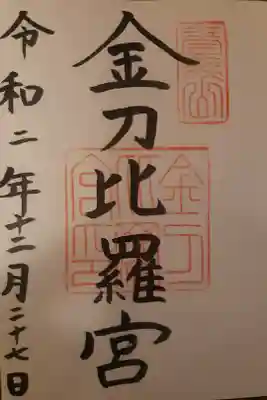 金刀比羅宮
令和二年十二月二十七日